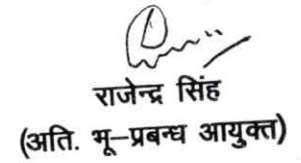 राजेन्द्र सिंह
(अति. भू-प्रबन्ध आयुक्त)